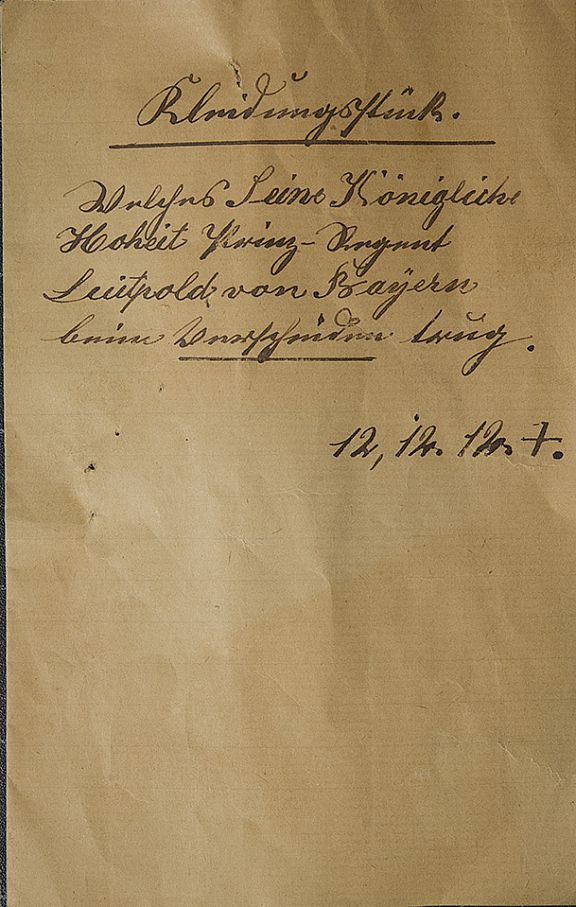 Kleidungsstück.
Welches Seine Königliche
Hoheit Prinz-Regent
Luitpold von Bayern
beim Verscheiden trug.
12, 12. 12. †.